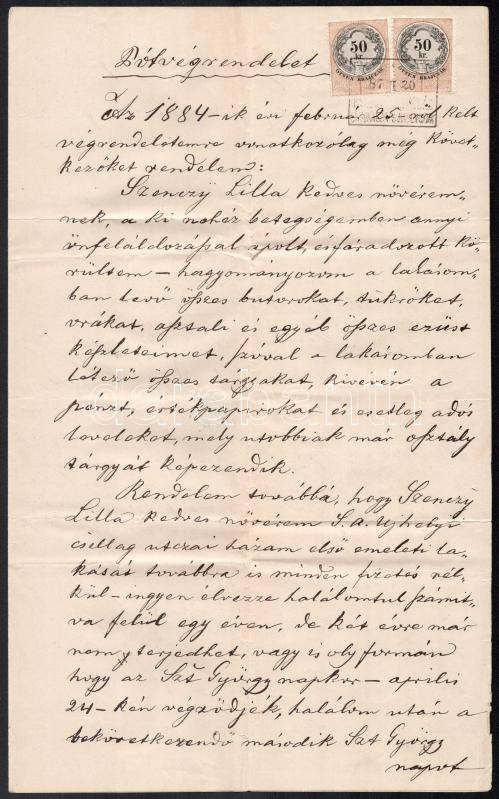 Pótvégrendelet
50 kr.
50 kr.
Az 1884-ik évi február 25-én kelt
végrendeletemre vonatkozólag még követ-
kezőket rendelem:
Szenczÿ Lilla kedves növérem-
nek, a ki nehéz betegségemben annyi
önfeláldozással ápolt, ésfáradozott kö-
rültem – hagyományozom a lakásom-
ban levő öszes butorokat, tükröket,
órákat, asztali és egyáb öszes ezüst
készleteimet, szóval a lakásomban
létező öszes targyakat, kivevén a
pénzt, értékpapirokat és esetleg adós
leveleket, mely utobbiak már osztály
tárgyát képezendik.
Rendelem továbbá, hogy Szenczÿ
Lilla kedves növérem S. a. Ujhelyi
csillag utczai házam első emeleti la-
kását továbbra is minden fizetés nél-
kül – ingyen élvezze halálomtul számit-
va felül egy éven, de két évre már
nem terjedhet, vagy is oly formán
hogy az Szt György napkor – április
24-kén végződjék, halálom után a
bekövetkezendő második Szt György
napot
darabanth